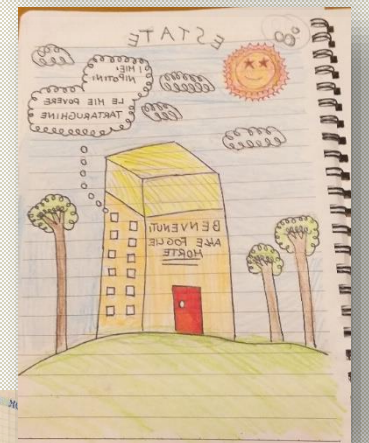 ESTATE
I MIEI
NIPOTINI
LE MIE POVERE
TARTARUGHINE
BENVENUTI
ALLE FOGLIE
MORTE